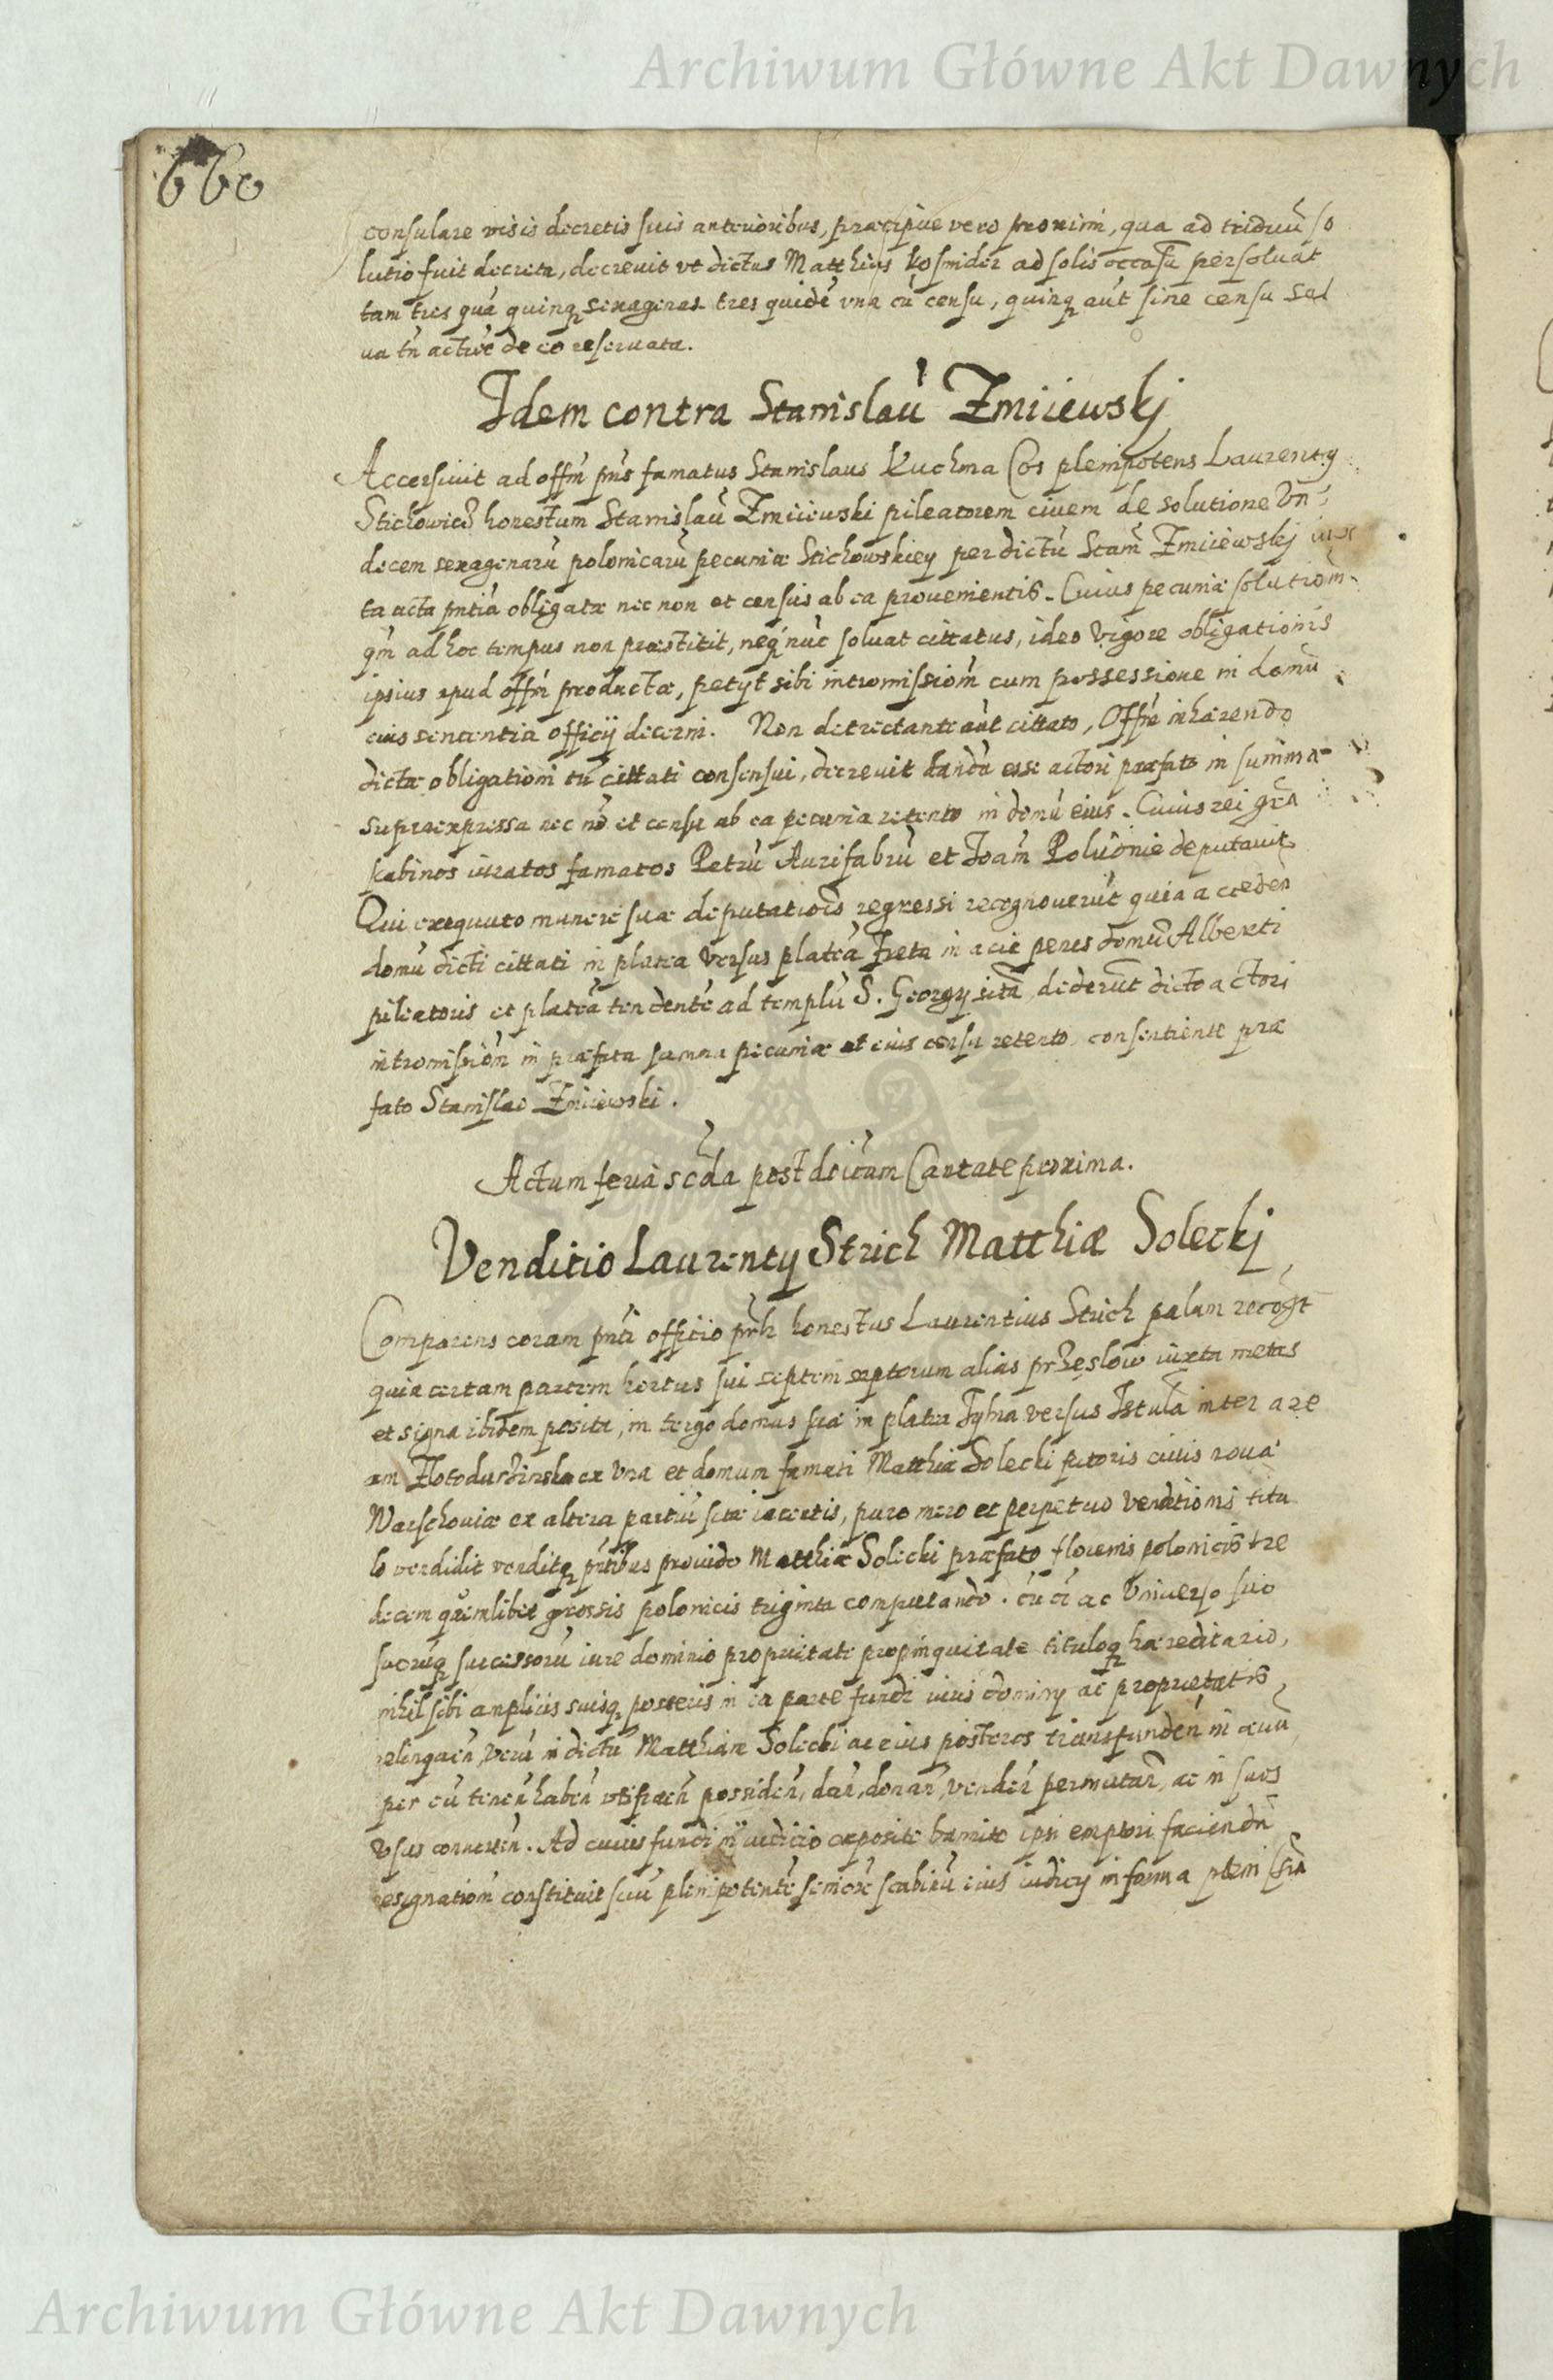 Archiwum Główne Akt Dawnych
660
consulare visis decretis suis anterioribus, præcipue vero proximi, qua ad triduũ so
lutio fuit decreta, decrevit vt dictus Matthias Kosmider ad solis occasũ persoluat
tam tres quã quinq sexagenas tres quidẽ vna cũ censu, quinq aũt sine censu sal
ua tñ actiõe de eo reseruata.
Idem contra Stanislaũ Zmiiewskj
Accersiuit ad offm pñs famatus Stanislaus Kuchma Cos plenipotens Laurentÿ
Stichowicz honestum Stanislaũ Zmiiewski pileatorem ciuem de solutione vn
decem sexagenarũ polonicarũ pecuniæ Stichowskiey per dictũ Stañ Zmiiewskj iux
ta acta pñtia obligatæ nec non et census ab ea prouenientis. Cuius pecuniæ solutiom
qm̃ ad hoc tempus non præstitit, neq nũc soluat cittatus, ideo vigore obligationis
ipsius apud offm productæ, petÿt sibi intromissiom̃ cum possessione in domũ
eius sententia officÿ decerni. Non detrectante aũt cittato, Offm inhærendo
dictæ obligationi tũ cittati consensui, decreuit dandã esse actori præfato in summa
supraexpressa nec nõ et censu ab ea pecunia retento in domũ eius. Cuius rei grã
scabinos iuratos famatos Petrũ Aurifabrũ et Joañ Poludnie deputauit.
Qui exequuto munere suæ deputatiõis regressi recognouerũt quia acceden
domũ dicti cittati in platea versus plateã Freta in acie penes domũ Alberti
pileatoris et plateã tendentẽ ad templũ S. Georgÿ sitã, dederũt dicto actori
intromissiom̃ in præfata summa pecuniæ et eius censu retento, consentiente præ
fato Stanislao Zmiiewski.
Actum feria scda post dnicam Cantate proxima.
Venditio Laurentÿ Strich Matthiæ Soleckj
Comparens coram pñti officio pñlr honestus Laurentius Strich palam recogt
quia certam partem hortus sui septem septorum alias przęslow iuxta metas
et signa ibidem posita, in tergo domus suæ in platea versus Istulã inter are
am ex vna et domum famati Matthiæ Solecki sutoris ciuis nouæ
Warschouiæ ex altera partiũ sitæ iacentis, puro mero et perpetuo venditionis titu
lo vendidit venditq pñtibus prouido Matthiæ Solecki præfato florenis polonicis tre
decem quẽmlibet grossis polonicis triginta computando. cũ oĩ ac vniuerso suo
suorũq successorũ iure dominio proprietate propinquitate tituloq hæreditario,
nihil sibi amplius suisq posteris in ea parte fundi iuris dominÿ ac proprietatis
relinquen, verũ in dictũ Matthiam Solecki ac eius posteros transfunden in æuũ
per eũ tenen haben vtifruen possiden, dan, donan, venden permutan, ac in suos
vsus conuerten. Ad cuius fundi in iudicio exposite bannito ipsi emptori faciendã
resignatiom̃ constituit suũ plenipotentẽ seniorẽ scabinũ eius iudicÿ in forma pleni
Archiwum Główne Akt Dawnych